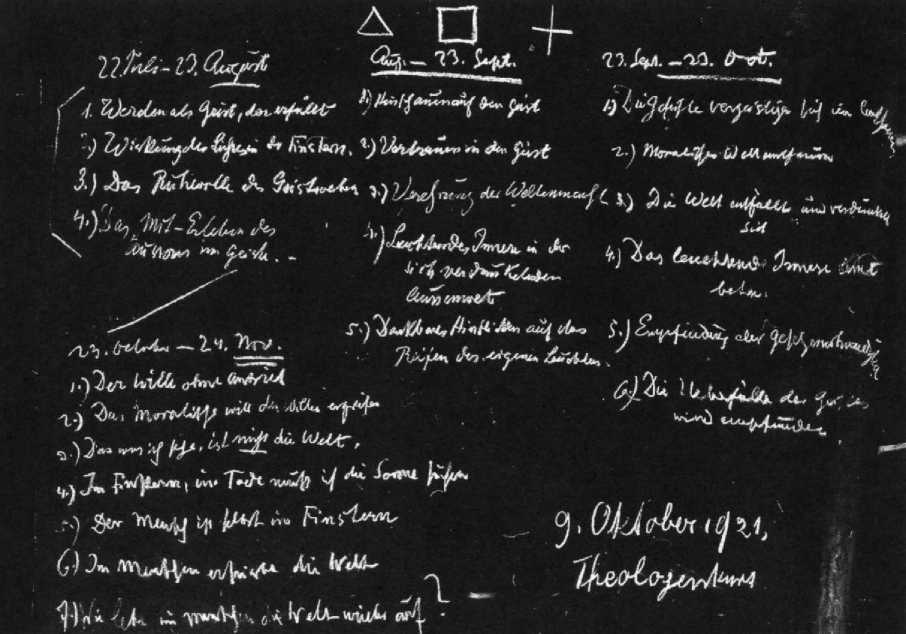 22. Juli – 23. August
1. Werden als Geist, der erfüllt
2.) Wirkung des im Finstern.
3.) Das Ruhevolle des Geistwebens
4.) Das Mit-Erleben des
Äussern im Geiste. –
Aug. – 23. Sept.
1.) Hinschauen auf den Geist
2.) Vertrauen in den Geist
3.) Verehrung der Weltenmacht
4.) Leuchtendes Innere in der
sich verdunkelnden
Aussenwelt
5.) Dankbares Hinblicken auf das
Reifen des eigenen
23. Sept. – 23. Oct.
1.) Die Gefühle vergeistigen sich im
2.) Moralisches Weltanschauen
3.) Die Welt entfällt und verdunkelt
sich
4.) Das leuchtende Innere lernt
beten.
5.) Empfindung der
6.) Die Ueberfülle des Geistes
wird empfunden.
23. October – 24. Nov.
1.) Der Wille ohne Anreiz
2.) Das Moralische will den Willen ergreifen
3.) Das was ich sehe, ist nicht die Welt.
4.) Im Finstern, im Tode muss ich die Sonne suchen
5.) Der Mensch ist selbst im Finstern
6.) Im Menschen erstirbt die Welt
7.) Wie lebt im Menschen die Welt wieder auf?
9. Oktober 1921,
Theologenkurs